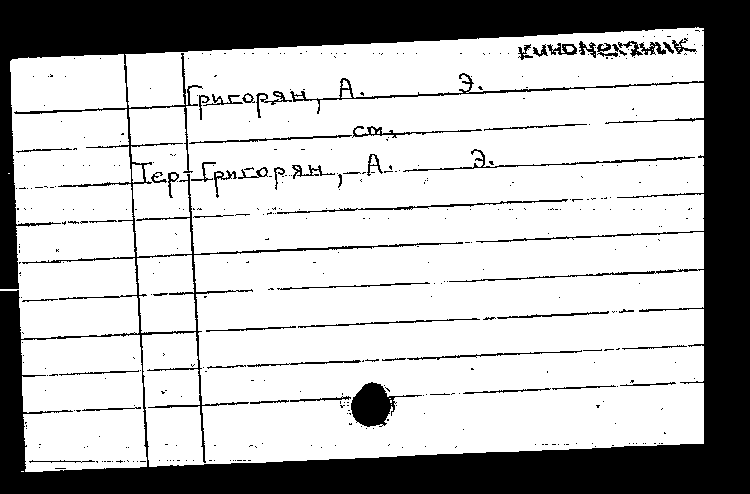 киномеханик
Григорян, А. Э.
см.
Тер-Григорян, А. Э.